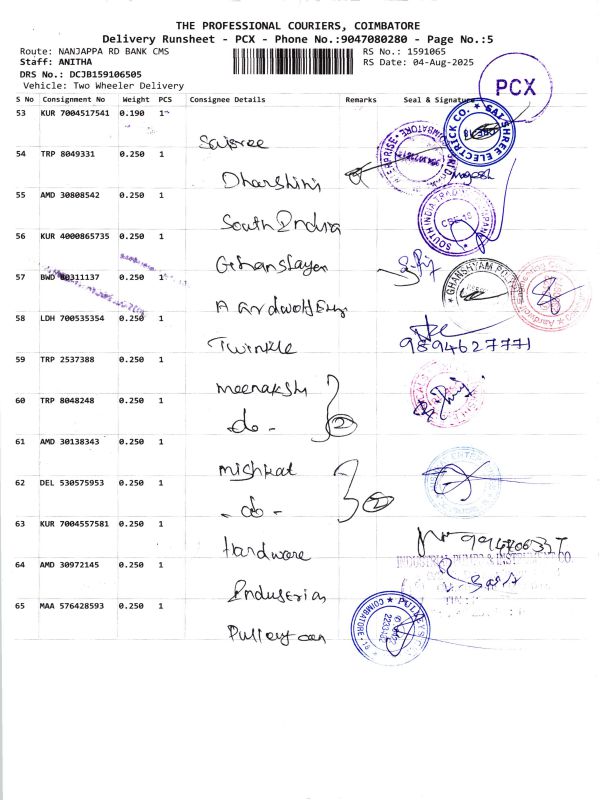 THE PROFESSIONAL COURIERS, COIMBATORE
Delivery Runsheet - PCX - Phone No.:9047080280 - Page No.:5
Route: NANJAPPA RD BANK CMS
RS No.: 1591065
Staff: ANITHA
RS Date: 04-Aug-2025
DRS No.: DCJB159106505
Vehicle: Two Wheeler Delivery
PCX
S No Consignment No Weight PCS Consignee Details Remarks Seal & Signature
53 KUR 7004517541 0.190 1
Saisree
54 TRP 8049331 0.250 1
Dharshini
55 AMD 30808542 0.250 1
South Indira
56 KUR 4000865735 0.250 1
Ghanslayam
57 BWD 80311137 0.250 1
Aardwolf Eng
58 LDH 700535354 0.250 1
Twinkle
9894627771
59 TRP 2537388 0.250 1
meenakshi
60 TRP 8048248 0.250 1
- do - 2
61 AMD 30138343 0.250 1
mishkat
62 DEL 530575953 0.250 1
- do - 2
63 KUR 7004557581 0.250 1
Hardware
64 AMD 30972145 0.250 1
INDUSTRIAL PUMPS & INSTRUMENT CO.
Industrian
65 MAA 576428593 0.250 1
Pulleycan